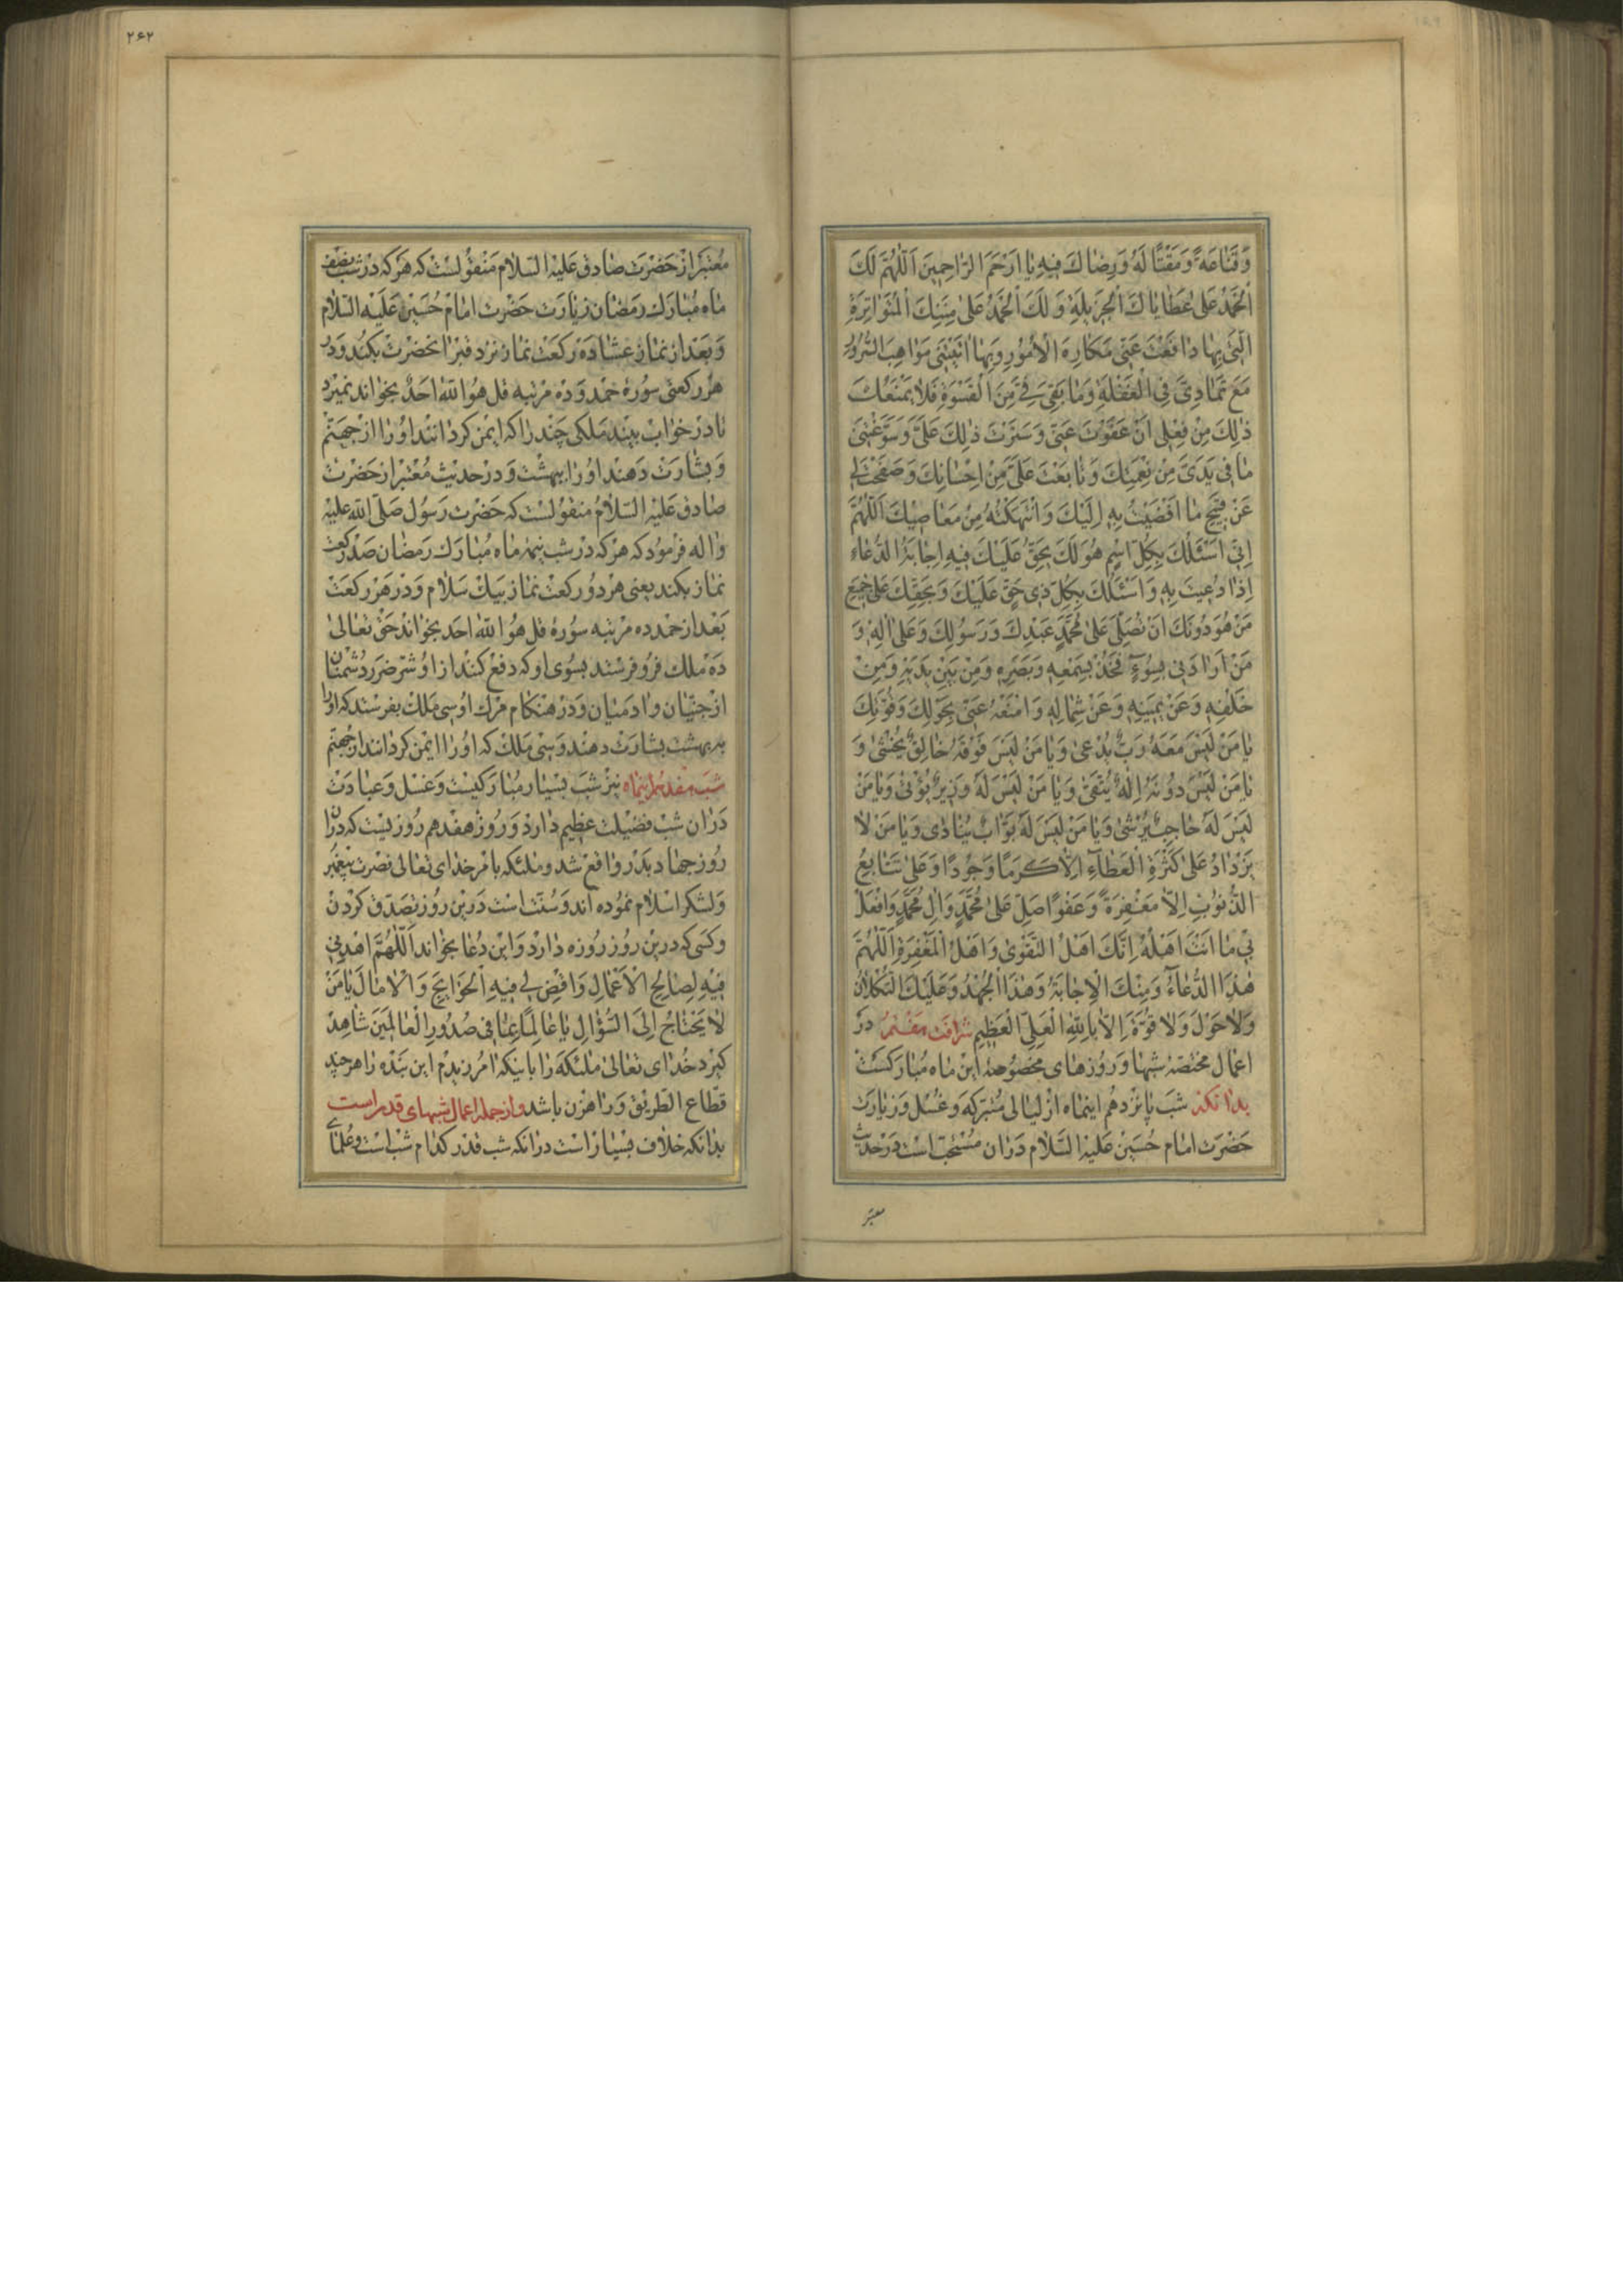 وَقَنَاعَةً وَمَقْتًا لَهُ وَرِضَاكَ فِيهِ يَا اَرْحَمَ الرَّاحِمِينَ اَللّٰهُمَّ لَكَ
الْحَمْدُ عَلىٰ عَطَايَاكَ الْجَزِيلَةِ وَلَكَ الْحَمْدُ عَلىٰ مِنَنِكَ الْمُتَوَاتِرَةِ
الَّتي بِهَا دَافَعْتَ عَنّي مَكَارِهَ الْاُمُورِ وَبِهَا اتَيْتَني مَوَاهِبَ السُّرُورِ
مَعَ تَمَادِيَّ فِي الْغَفْلَةِ وَمَا بَقِيَ فِيَّ مِنَ الْقَسْوَةِ فَلَمْ يَمْنَعْكَ
ذٰلِكَ مِنْ فِعْلي اَنْ عَفَوْتَ عَنّي وَسَتَرْتَ ذٰلِكَ عَلَيَّ وَسَوَّغْتَني
مَا في يَدَيَّ مِنْ نِعْمَتِكَ وَتَابَعْتَ عَلَيَّ مِنْ اِحْسَانِكَ وَصَفَحْتَ لي
عَنْ قَبِيحِ مَا اَفْضَيْتُ بِهِ اِلَيْكَ وَانْتَهَكْتُهُ مِنْ مَعَاصِيكَ اَللّٰهُمَّ
اِنّي اَسْئَلُكَ بِكُلِّ اسْمٍ هُوَ لَكَ يَحِقُّ عَلَيْكَ فِيهِ اِجَابَةُ الدُّعَاءِ
اِذَا دُعِيتَ بِهِ وَاَسْئَلُكَ بِكُلِّ ذي حَقٍّ عَلَيْكَ وَبِحَقِّكَ عَلىٰ جَمِيعِ
مَنْ هُوَ دُونَكَ اَنْ تُصَلِّيَ عَلىٰ مُحَمَّدٍ عَبْدِكَ وَرَسُولِكَ وَعَلىٰ الِهِ وَ
مَنْ اَرَادَني بِسُوءٍ فَخُذْ بِسَمْعِهِ وَبَصَرِهِ وَمِنْ بَيْنِ يَدَيْهِ وَمِنْ
خَلْفِهِ وَعَنْ يَمِينِهِ وَعَنْ شِمَالِهِ وَامْنَعْهُ عَنّي بِحَوْلِكَ وَقُوَّتِكَ
يَا مَنْ لَيْسَ مَعَهُ رَبٌّ يُدْعىٰ وَيَا مَنْ لَيْسَ فَوْقَهُ خَالِقٌ يُخْشىٰ وَ
يَا مَنْ لَيْسَ دُونَهُ اِلٰهٌ يُتَّقىٰ وَيَا مَنْ لَيْسَ لَهُ وَزِيرٌ يُؤْتىٰ وَيَا مَنْ
لَيْسَ لَهُ حَاجِبٌ يُرْشىٰ وَيَا مَنْ لَيْسَ لَهُ بَوَّابٌ يُنَادىٰ وَيَا مَنْ لَا
يَزْدَادُ عَلىٰ كَثْرَةِ الْعَطَاءِ اِلَّا كَرَمًا وَجُودًا وَعَلىٰ تَتَابُعِ
الذُّنُوبِ اِلَّا مَغْفِرَةً وَعَفْوًا صَلِّ عَلىٰ مُحَمَّدٍ وَالِ مُحَمَّدٍ وَافْعَلْ
بي مَا اَنْتَ اَهْلُهُ اِنَّكَ اَهْلُ التَّقْوىٰ وَاَهْلُ الْمَغْفِرَةِ اَللّٰهُمَّ
هٰذَا الدُّعَاءُ وَمِنْكَ الْاِجَابَةُ وَهٰذَا الْجُهْدُ وَعَلَيْكَ التُّكْلَانُ
وَلَا حَوْلَ وَلَا قُوَّةَ اِلَّا بِاللّٰهِ الْعَلِيِّ الْعَظِيمِ شرافت هفتم در
اعمال مختصّهٔ شبها و روزهای مخصوصهٔ این ماه مبارکست
بدانکه شب پانزدهم اینماه از لیالی متبرکه و غسل و زیارت
حضرت امام حسین علیه السّلام در آن مستحبّ است و در حدیث
معتبر
۲۶۲
معتبر از حضرت صادق علیه السّلام منقولست که هر که در شب نصف
ماه مبارک رمضان زیارت حضرت امام حسین علیه السّلام
و بعد از نماز عشا ده رکعت نماز نزد قبر انحضرت بکند و در
هر رکعتی سورهٔ حمد و ده مرتبه قل هو اللّه احد بخواند نمیرد
تا در خواب ببیند ملکی چند را که ایمن کردانند او را از جهنّم
و بشارت دهند او را ببهشت و در حدیث معتبر از حضرت
صادق علیه السّلام منقولست که حضرت رسول صلّی اللّه علیه
و اله فرمود که هر که در شب نیمهٔ ماه مبارک رمضان صد رکعت
نماز بکند یعنی هر دو رکعت نماز بیک سلام و در هر رکعت
بعد از حمد ده مرتبه سورهٔ قل هو اللّه احد بخواند حق تعالی
ده ملک فرو فرستد بسوی او که دفع کنند از او شرّ ضرر دشمنان
از جنّیان و ادمیان و در هنکام مرک او سی ملک بفرستد که او را
به بهشت بشارت دهند و سی ملک که او را ایمن کردانند از جهنّم
شب هفدهم اینماه نیز شب بسیار مبارکیست و غسل و عبادت
در ان شب فضیلت عظیم دارد و روز هفدهم روزیست که در ان
روز جهاد بدر واقع شد و ملئکه بامر خدای تعالی نصرت پیغمبر
و لشکر اسلام نموده اند و سنّت است درین روز تصدّق کردن
و کسی که درین روز روزه دارد و این دعا بخواند اَللّٰهُمَّ اهْدِني
فِيهِ لِصَالِحِ الْاَعْمَالِ وَاقْضِ لي فِيهِ الْحَوَائِجَ وَالْامَالَ يَا مَنْ
لَا يَحْتَاجُ اِلَى السُّؤَالِ يَا عَالِمًا بِمَا في صُدُورِ الْعَالَمِينَ شاهد
کیرد خدای تعالی ملئکه را باینکه امرزیدم این بنده را هر چند
قطّاع الطّریق و راهزن باشد و از جمله اعمال شبهای قدر است
بدانکه خلاف بسیار است در انکه شب قدر کدام شب است و علمای